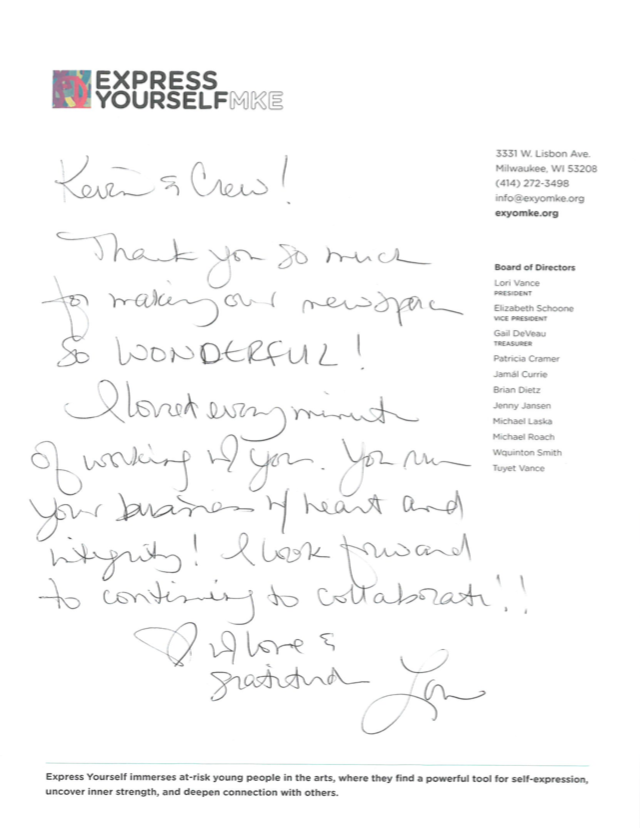 EXPRESS
YOURSELFMKE
3331 W. Lisbon Ave.
Milwaukee, WI 53208
(414) 272-3498
info@exyomke.org
exyomke.org
Board of Directors
Lori Vance
PRESIDENT
Elizabeth Schoone
VICE PRESIDENT
Gail DeVeau
TREASURER
Patricia Cramer
Jamál Currie
Brian Dietz
Jenny Jansen
Michael Laska
Michael Roach
Wquinton Smith
Tuyet Vance
Kevin & Crew!
Thank you so much
for making our new space
so WONDERFUL!
I loved every minute
of working w/ you. You run
your business w/ heart and
integrity! I look forward
to continuing to collaborate!!
w/ love &
gratitude Lori
Express Yourself immerses at-risk young people in the arts, where they find a powerful tool for self-expression,
uncover inner strength, and deepen connection with others.